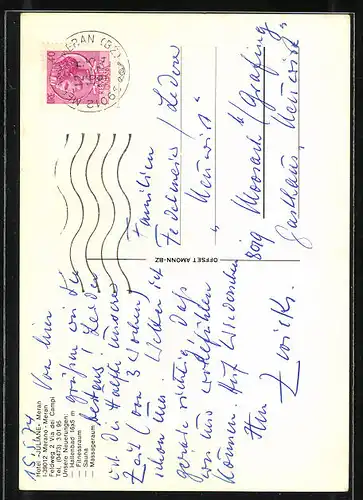 Hotel »JULIANE« Meran
I-39012 Merano - Meran
Feldweg 2 Via dei Campi
Tel. (0473) 3 01 95
Unsere Neuerungen:
— Hallenbad 16x6 m
— Fitnessraum
— Sauna
— Massageraum
15.5.74
Von hier
grüßen wir Sie
bestens! Leider
ist die Hälfte unserer
Zeit (von 3 Wochen)
schon um. Wetter ist
gerade richtig, daß
wir uns wohlfühlen
können. Auf Wiedersehen
Ihre
OFFSET AMONN-BZ
MERAN (BZ)
39012
Familien
/
"
8019 Moosach b/Grafing
Gasthaus "Neuwirt"